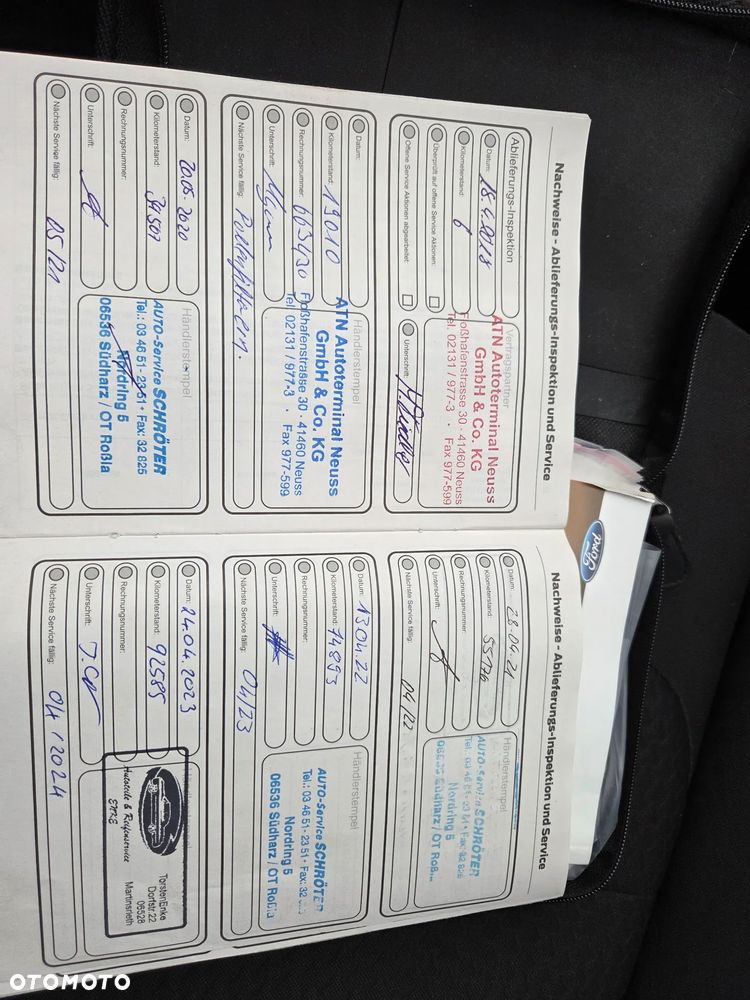 Nachweise - Ablieferungs-Inspektion und Service
Ablieferungs-Inspektion
Datum: 18.4.2018
Kilometerstand: 6
Überprüft auf offene Service Aktionen:
Offene Service Aktionen abgearbeitet:
Vertragspartner
ATN Autoterminal Neuss
GmbH & Co. KG
Floßhafenstrasse 30 · 41460 Neuss
Tel. 02131 / 977-3 · Fax 977-599
Unterschrift:
Datum:
Kilometerstand: 19010
Rechnungsnummer: 663430
Unterschrift:
Nächste Service fällig:
Händlerstempel
ATN Autoterminal Neuss
GmbH & Co. KG
Floßhafenstrasse 30 · 41460 Neuss
Tel. 02131 / 977-3 · Fax 977-599
Datum: 20.05.2020
Kilometerstand: 34507
Rechnungsnummer:
Unterschrift:
Nächste Service fällig: 05/21
Händlerstempel
AUTO-Service SCHRÖTER
Tel.: 03 46 51 - 23 51 · Fax: 32 825
Nordring 5
06536 Südharz / OT Roßla
Nachweise - Ablieferungs-Inspektion und Service
Datum: 28.04.21
Kilometerstand: 55176
Rechnungsnummer:
Unterschrift:
Nächste Service fällig: 04/22
Händlerstempel
AUTO-Service SCHRÖTER
Tel.: 03 46 51 - 23 51 · Fax: 32 825
Nordring 5
06536 Südharz / OT
Datum: 13.04.22
Kilometerstand: 74893
Rechnungsnummer:
Unterschrift:
Nächste Service fällig: 04/23
Händlerstempel
AUTO-Service SCHRÖTER
Tel.: 03 46 51 - 23 51 · Fax: 32
Nordring 5
06536 Südharz / OT Roßla
Datum: 24.04.2023
Kilometerstand: 92585
Rechnungsnummer:
Unterschrift:
Nächste Service fällig: 04/2024
Autoteile & Reifenservice
ENKE
Torsten Enke
Dorfstr. 22
06528
Martinsrieth
Ford
OTOMOTO